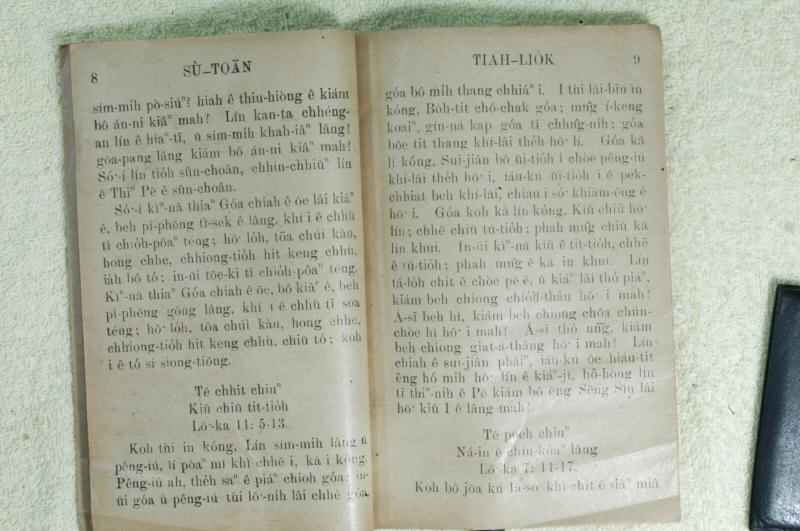 8
SÙ–TOĀN
sím-mih pò-siúⁿ? hiah ê thiu-hiòng ê kiám
bô án-ni kiâⁿ mah? Lín kan-ta chhéng-
an lín ê hiaⁿ-tī, ū sím-mih khah-iâⁿ lâng?
gōa-pang lâng kiám bô án-ni kiâⁿ mah?
Só·-í lín tio̍h sûn-choân, chhin-chhiūⁿ lín
ê Thiⁿ Pē ê sûn-choân.
Só·-í kìⁿ-nā thiaⁿ Góa chiah ê ōe lâi kiâⁿ
ê, beh pí-phēng ū-sek ê lâng, khí i ê chhù
tī chio̍h-pôaⁿ téng; hō· lo̍h, tōa chúi kàu,
hong chhe, chhiong-tio̍h hit keng chhù,
iáh bô tó; in-ūi tōe-ki tī chio̍h-pôaⁿ téng.
Kìⁿ-nā thiaⁿ Góa chiah ê ōe, bô kiâⁿ ê, beh
pí-phēng gōng lâng, khí i ê chhù tī soa
téng; hō· lo̍h, tōa chúi kàu, hong chhe,
chhiong-tio̍h hit keng chhù, chiū tó; koh
i ê tó sī siong-tiōng.
Tē chhit chiuⁿ
Kiû chiū tit-tio̍h
Lō·-ka 11: 5-13.
Koh tùi in kóng, Lín sím-mih lâng ū
pêng-iú, lí pòaⁿ mî khì chhē i, kā i kóng,
Pêng-iú ah, the̍h saⁿ ê piáⁿ chioh góa; in-
ūi góa ū pêng-iú tùi lō·-nih lâi chhē góa,
TIAH–LIO̍K
9
góa bô mih thang chhiáⁿ i. I tùi lāi-bīn ìn
kóng, Bo̍h-tit chō-chak góa; mn̂g í-keng
koaiⁿ, gín-ná kap góa tī chhn̂g-nih; góa
bōe tit thang khí-lâi the̍h hō· lí. Góa kā
lí kóng, Sui-jiân bô ūi-tio̍h i chòe pêng-iú
khí-lâi the̍h hō· i, iáu-kú ūi-tio̍h i ê pek-
chhiat beh khí-lâi, chiàu i só· khiàm-ēng ê
hō· i. Góa koh kā lín kóng, Kiû chiū hō·
lín; chhē chiū tú-tio̍h; phah mn̂g chiū kā
lín khui. In-ūi kìⁿ-nā kiû ê tit-tio̍h, chhē
ê tú-tio̍h; phah mn̂g ê kā in khui. Lín
tá-lo̍h chit ê chòe pē ê, ū kiáⁿ lâi thó piáⁿ,
kiám beh chiong chio̍h-thâu hō· i mah?
Á-sī beh hî, kiám beh chiong chôa chún-
chòe hî hō· i mah? Á-sī thó nn̄g, kiám
beh chiong giat-á-tháng hō· i mah? Lín
chiah ê sui-jiân pháiⁿ, iáu-kú ōe hiáu-tit
ēng hó mih hō· lín ê kiáⁿ-jî, hô-hòng lín
tī thiⁿ-nih ê Pē kiám bô ēng Sèng Sîn lâi
hō· kiû I ê lâng mah?
Tē peh chiuⁿ
Ná-in ê chiú-kóaⁿ lâng
Lō·-ka 7: 11-17.
Koh bô jōa kú Iâ-so· khì chit ê siâⁿ miâ